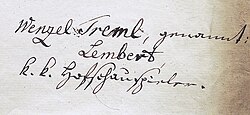 Wenzel Treml, genannt
Lembert,
k. k. Hofschauspieler.